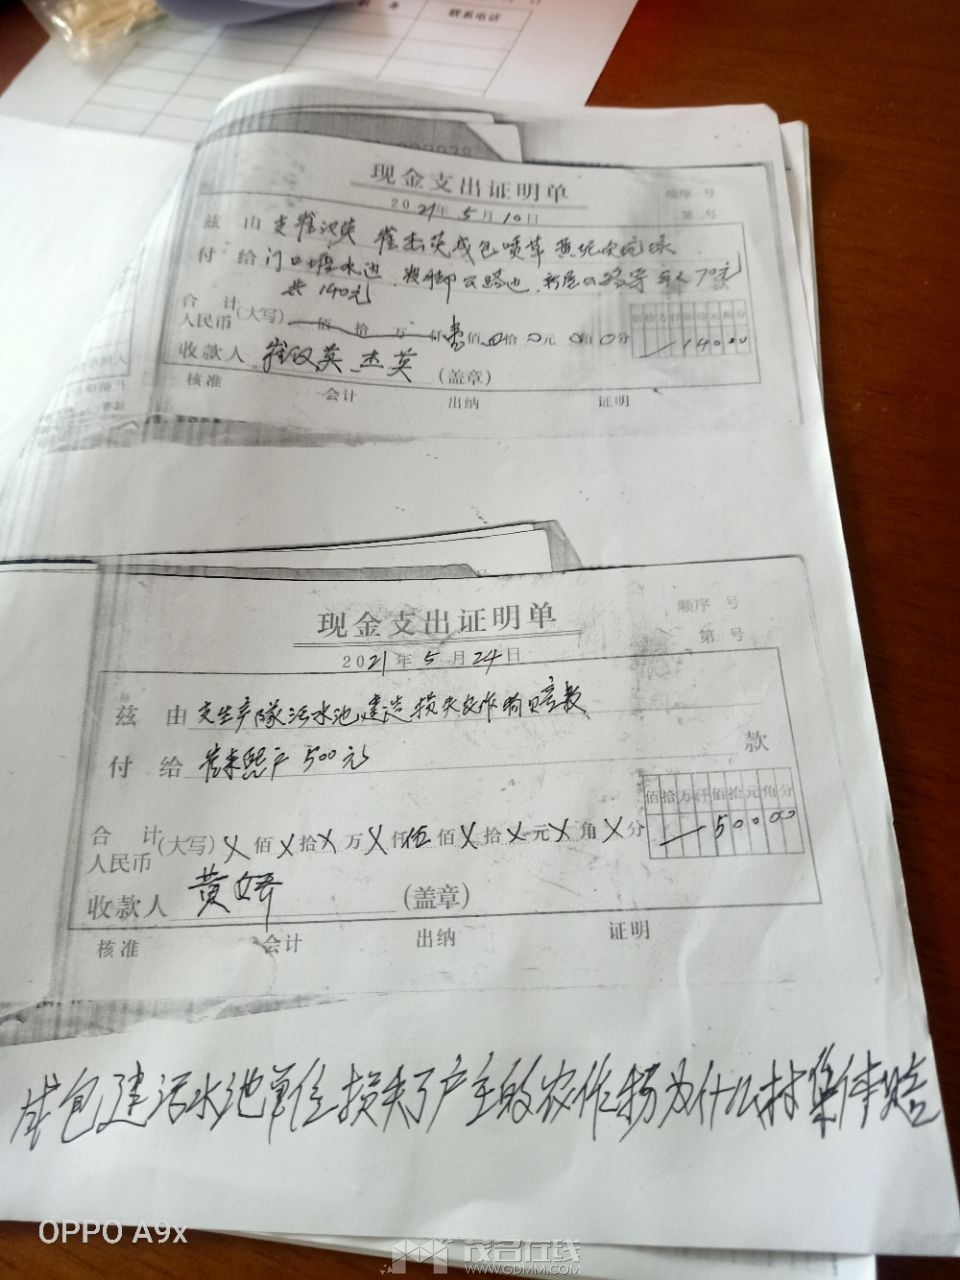 联系电话
现金支出证明单
顺序 号
2021年5月10日
第 号
兹 由 支崔汉英 崔杰英戋包喷草
付 给 门口塘水边 公路边 每人70元
共140元
合计人民币(大写) 佰 拾 万 仟壹佰 拾 元 角 分
佰拾万仟佰拾元角分
14000
收款人 崔汉英 杰英 (盖章)
核准 会计 出纳 证明
现金支出证明单
顺序 号
2021年5月24日
第 号
兹 由 支生产队污水池建造损失农作物赔款
付 给 户500元 款
合计人民币(大写)X佰X拾X万X仟伍佰X拾X元X角X分
佰拾万仟佰拾元角分
50000
收款人 黄 (盖章)
核准 会计 出纳 证明
承包建污水池单位损失了户主的农作物为什么村集体赔
OPPO A9x
茂名在线
WWW.GDMM.COM